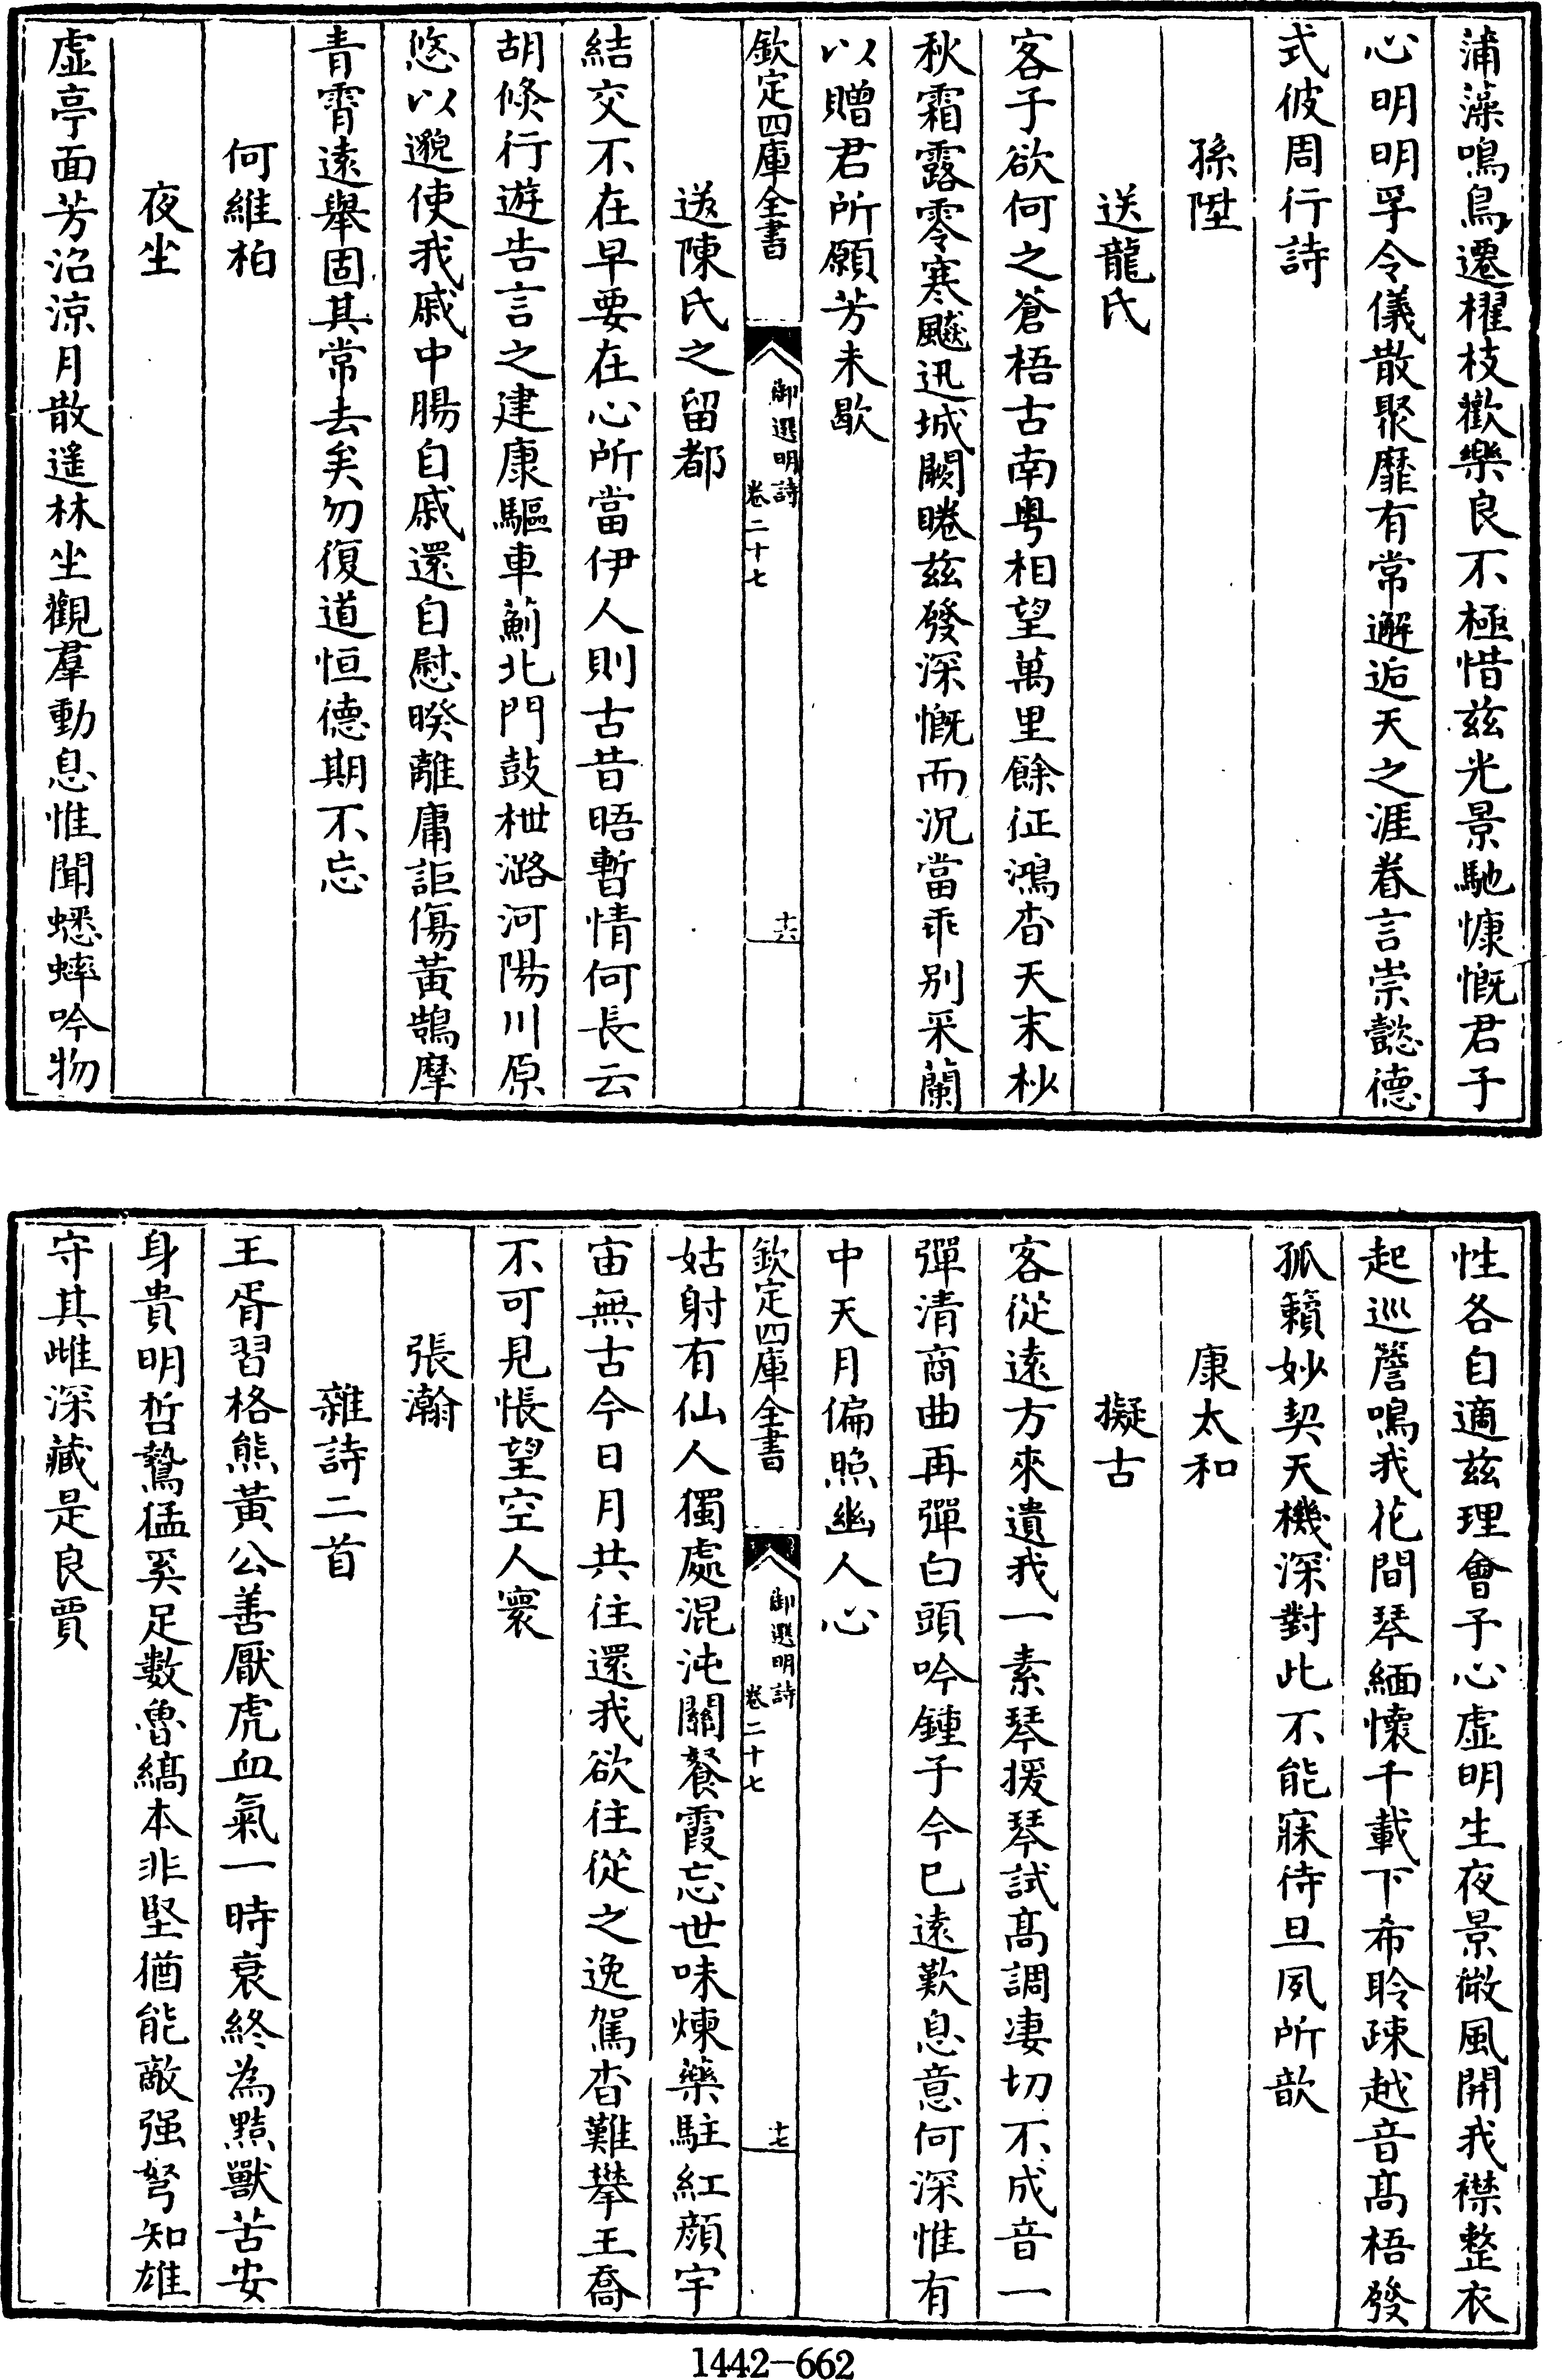 蒲藻鳴鳥遷櫂枝歡樂良不極惜兹光景馳慷慨君子
心明明孚令儀散聚靡有常邂逅天之涯眷言崇懿德
式彼周行詩
孫陞
送龍氏
客子欲何之蒼梧古南粤相望萬里餘征鴻杳天末杪
秋霜露零寒飈迅城闕睠兹發深慨而況當乖别采蘭
以贈君所願芳未歇
欽定四庫全書
御選明詩
卷二十七
十六
送陳氏之留都
結交不在早要在心所當伊人則古昔晤暫情何長云
胡倏行遊告言之建康驅車薊北門鼓枻潞河陽川原
悠以邈使我戚中腸自戚還自慰暌離庸詎傷黄鵠摩
青霄遠舉固其常去矣勿復道恒德期不忘
何維柏
夜坐
虚亭面芳沼涼月散遥林坐觀羣動息惟聞蟋蟀吟物
性各自適兹理會予心虚明生夜景微風開我襟整衣
起巡簷鳴我花間琴緬懷千載下希聆疎越音髙梧發
孤籟妙契天機深對此不能寐待旦夙所歆
康太和
擬古
客從遠方來遺我一素琴援琴試髙調凄切不成音一
彈清商曲再彈白頭吟鍾子今已遠歎息意何深惟有
中天月偏照幽人心
欽定四庫全書
御選明詩
卷二十七
十七
姑射有仙人獨處混沌關餐霞忘世味煉藥駐紅顔宇
宙無古今日月共往還我欲往從之逸駕杳難攀王喬
不可見悵望空人寰
張瀚
雜詩二首
王胥習格熊黄公善厭虎血氣一時衰終為㸃獸苦安
身貴明哲鷙猛奚足數魯縞本非堅猶能敵强弩知雄
守其雌深藏是良賈
1442-662